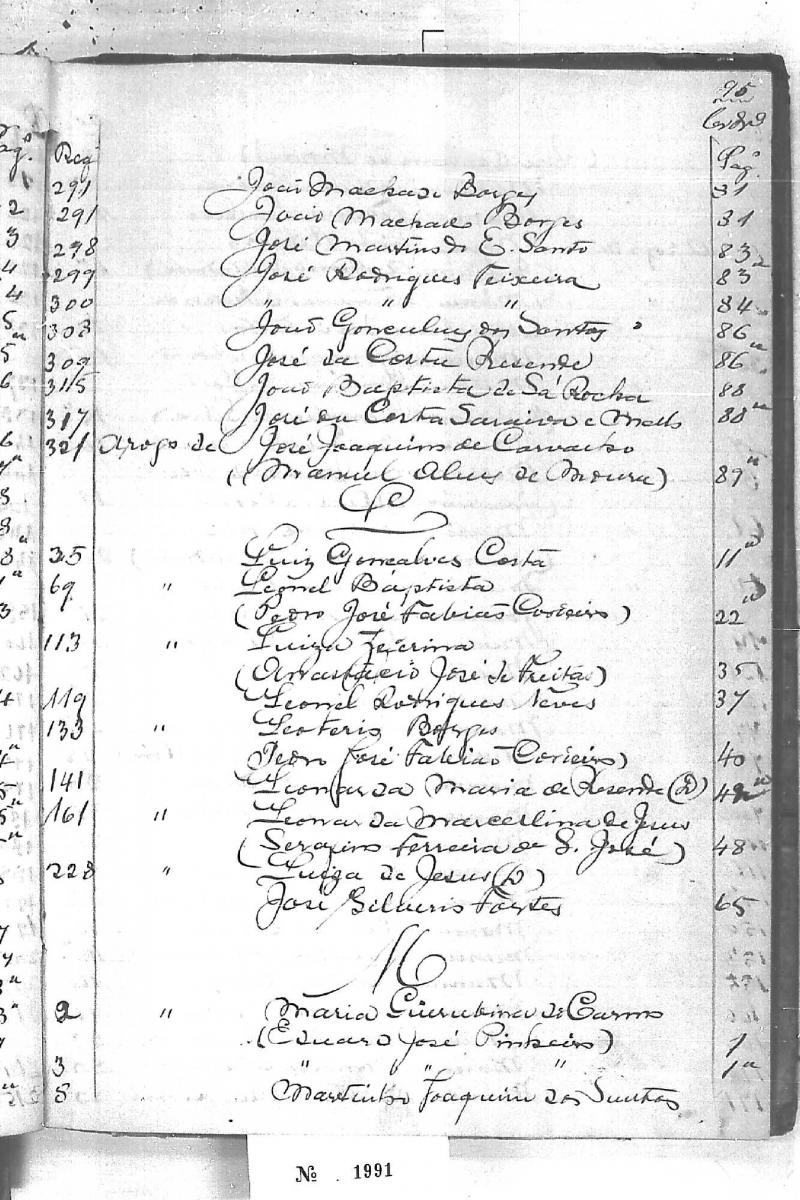 95
Pag.
Reg
291 João Machado Borges 31
291 João Machado Borges 31
298 José Martins do E. Santo 83
299 José Rodrigues Teixeira 83
300 " " " 84
303 João Gonculves dos Santos 86
309 José da Costa Resende 86
315 João Baptista de Sá Rocha 88
317 José da Costa Saraiva e Mello 88
321 arogo de José Joaquim de Carvalho
(Manuel Alves de Moura) 89
L
35 Luiz Goncalves Costa 11
69 " Leonel Baptista
(Pedro José Fabião) 22
113 " Luiza Zeferina
(Anastacio José de Freitas) 35
119 Leonel Rodrigues Neves 37
133 " Borges
Pedro José Fabiaõ 40
141 Leonarda Maria de Resende (D)
161 " Leonarda Marcellina de Jesus
(Serafino Ferreira de S. José) 48
228 " Luiza de Jesus (D)
José Silverio Fortes 65
M
2 " Maria do Carmo
(Eduardo José Pinheiro) 1
3 " " " 1
5 Martinho Joaquim dos Santos
№ 1991